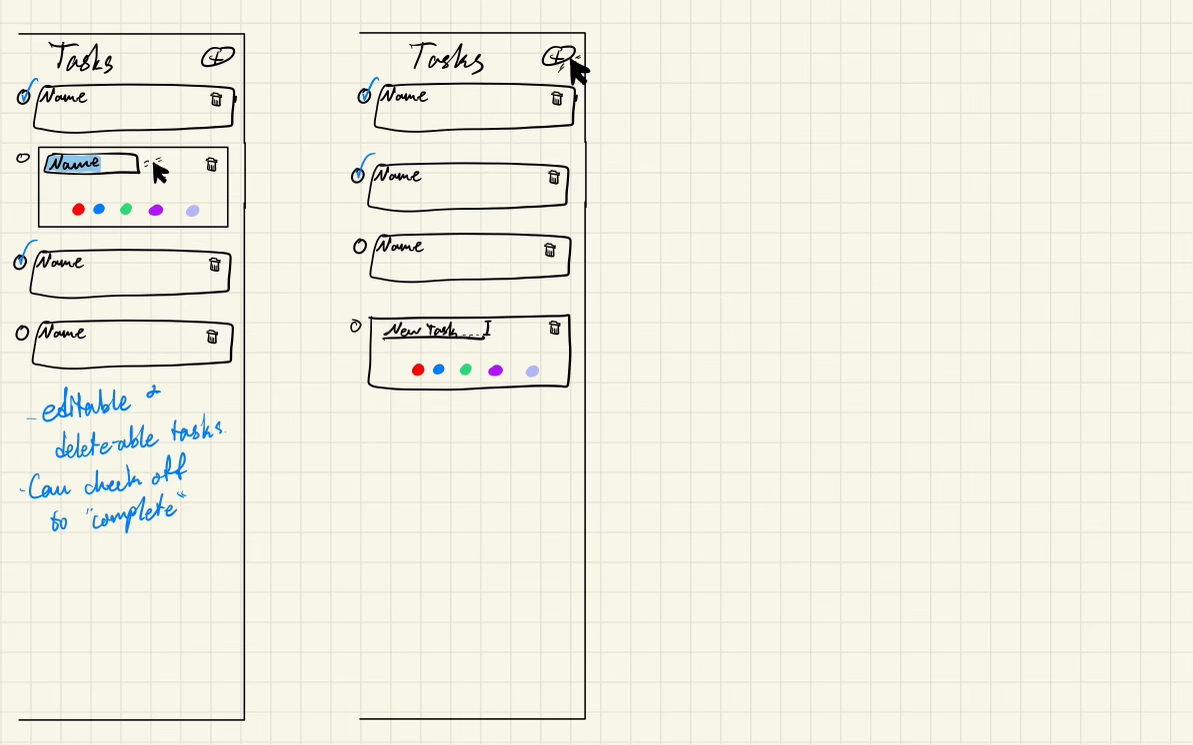 Tasks
Name
Name
Name
Name
- editable &
deleteable tasks.
- Can check off
to "complete"
Tasks
Name
Name
Name
New Task...